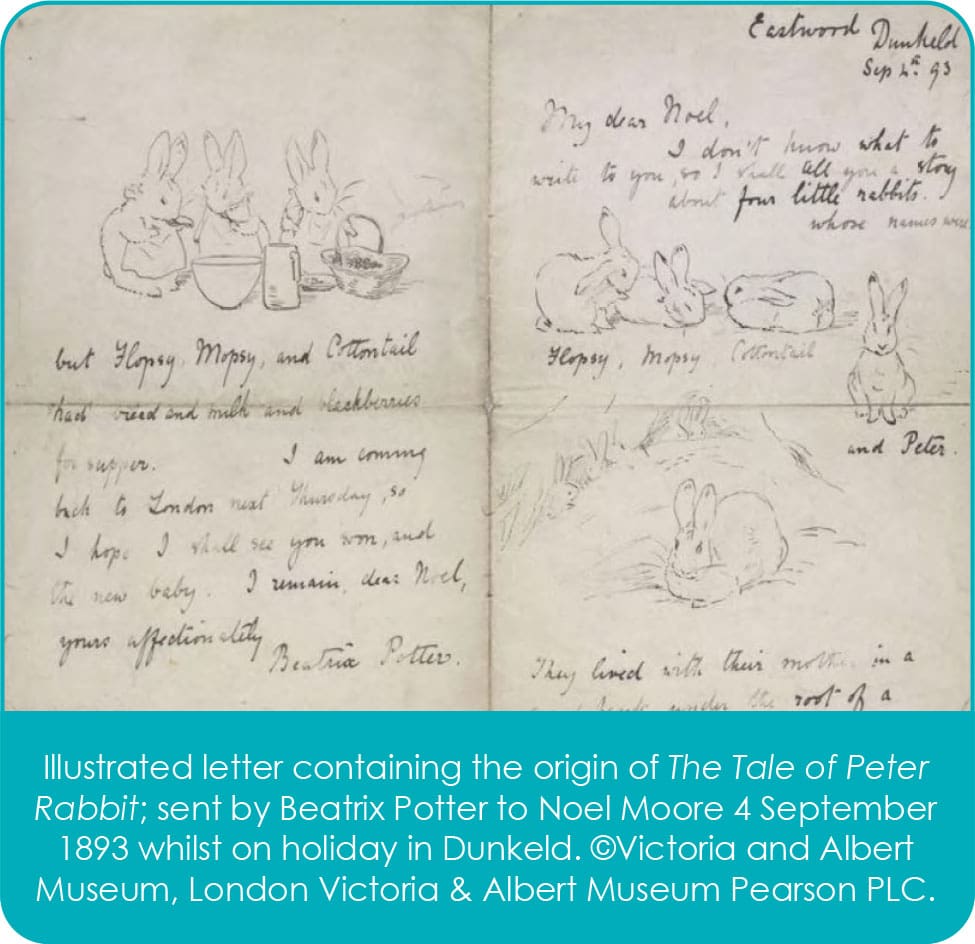 Eastwood Dunkeld
Sep 4th 93
My dear Noel,
I don't know what to
write to you, so I shall tell you a story
about four little rabbits.
whose names were
Flopsy, Mopsy Cottontail
and Peter.
They lived with their mother in a
bank under the root of a
but Flopsy, Mopsy, and Cottontail
had bread and milk and blackberries
for supper. I am coming
back to London next Thursday, so
I hope I shall see you soon, and
the new baby. I remain, dear Noel,
yours affectionately
Beatrix Potter.
Illustrated letter containing the origin of The Tale of Peter
Rabbit; sent by Beatrix Potter to Noel Moore 4 September
1893 whilst on holiday in Dunkeld. ©Victoria and Albert
Museum, London Victoria & Albert Museum Pearson PLC.